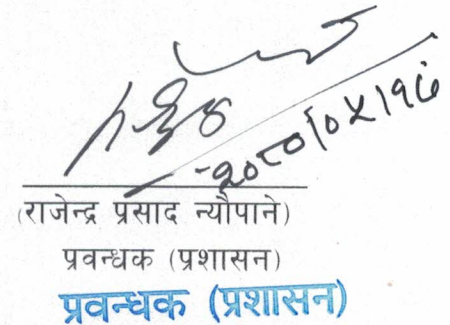 २०८०।०५।१७
(राजेन्द्र प्रसाद न्यौपाने)
प्रवन्धक (प्रशासन)
प्रवन्धक (प्रशासन)